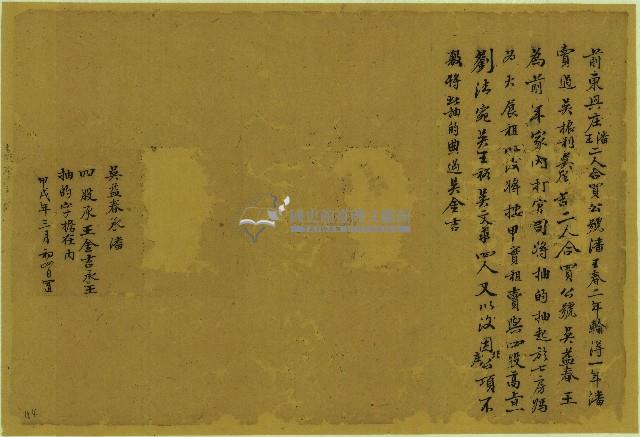 前東興庄潘王二人合買公號潘王春二年輪得一年潘
賣過吳振利吳屋苦二人合買公號吳益春王
為前年家內打官司將抽的抽起於七房踢
為大展租以後將按甲賣租賣與四股高
劉法宛吳王祈吳文華四人又以後因公項不
敷將此抽的典過吳金吉
吳益春承潘
四股承王金吉承王
抽的字據在內
甲戌年三月初四日置
國史館臺灣文獻館
TAIWAN HISTORICA